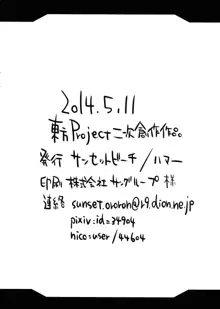 2014.5.11
東方Project二次創作作品
発行 サンセットビーチ/ハマー
印刷 株式会社サングループ様
連絡 sunset.ororon@r9.dion.ne.jp
pixiv:id=34904
nico:user/44604